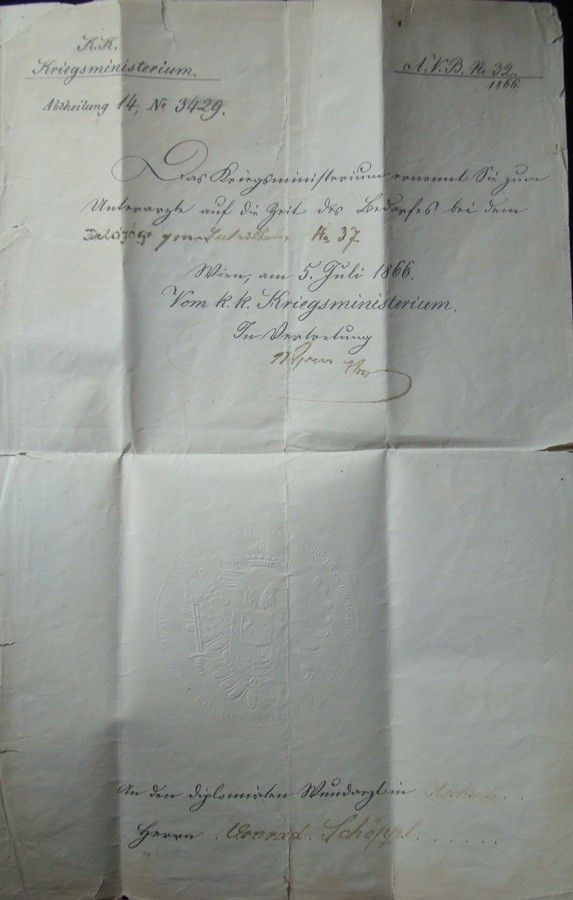 K.K.
Kriegsministerium.
A.V.B. No 32.
1866.
Abtheilung 14, No 3429.
Das Kriegsministerium ernennt Sie zum
Unterarzte auf die Zeit des Bedarfes bei dem
No 37
Wien, am 5. Juli 1866.
Vom k. k. Kriegsministerium.
In Vertretung
An den diplomirten Wundarzt in
Herrn Conrad Schöppl